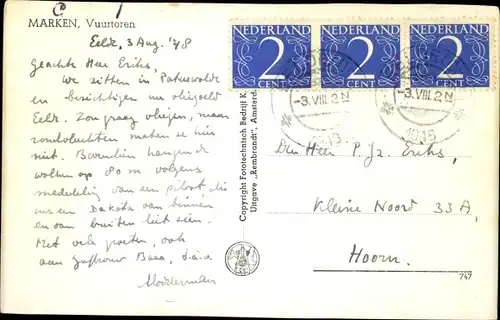 MARKEN, Vuurtoren
Eelde, 3 Aug. '48
Geachte Heer Eriks,
We zitten in Paterswolde
en bezichtigen nu vliegveld
Eelde. Zou graag vliegen, maar
rondvluchten maken ze hier
niet. Bovendien hangen de
wolken op 80 m volgens
mededeling van een piloot die
ons een Dakota van binnen
en van buiten liet zien.
Met vele groeten, ook
aan Juffrouw Baas, t.à.v.
Copyright Fototechnisch Bedrijf K.
Uitgave „Rembrandt", Amsterd.
NEDERLAND NEDERLAND NEDERLAND
2 2 2
CENT CENT CENT
-3.VIII.2N -3.VIII.2N
1948
Den Heer P. Jz. Eriks,
Kleine Noord 33A,
Hoorn.
747